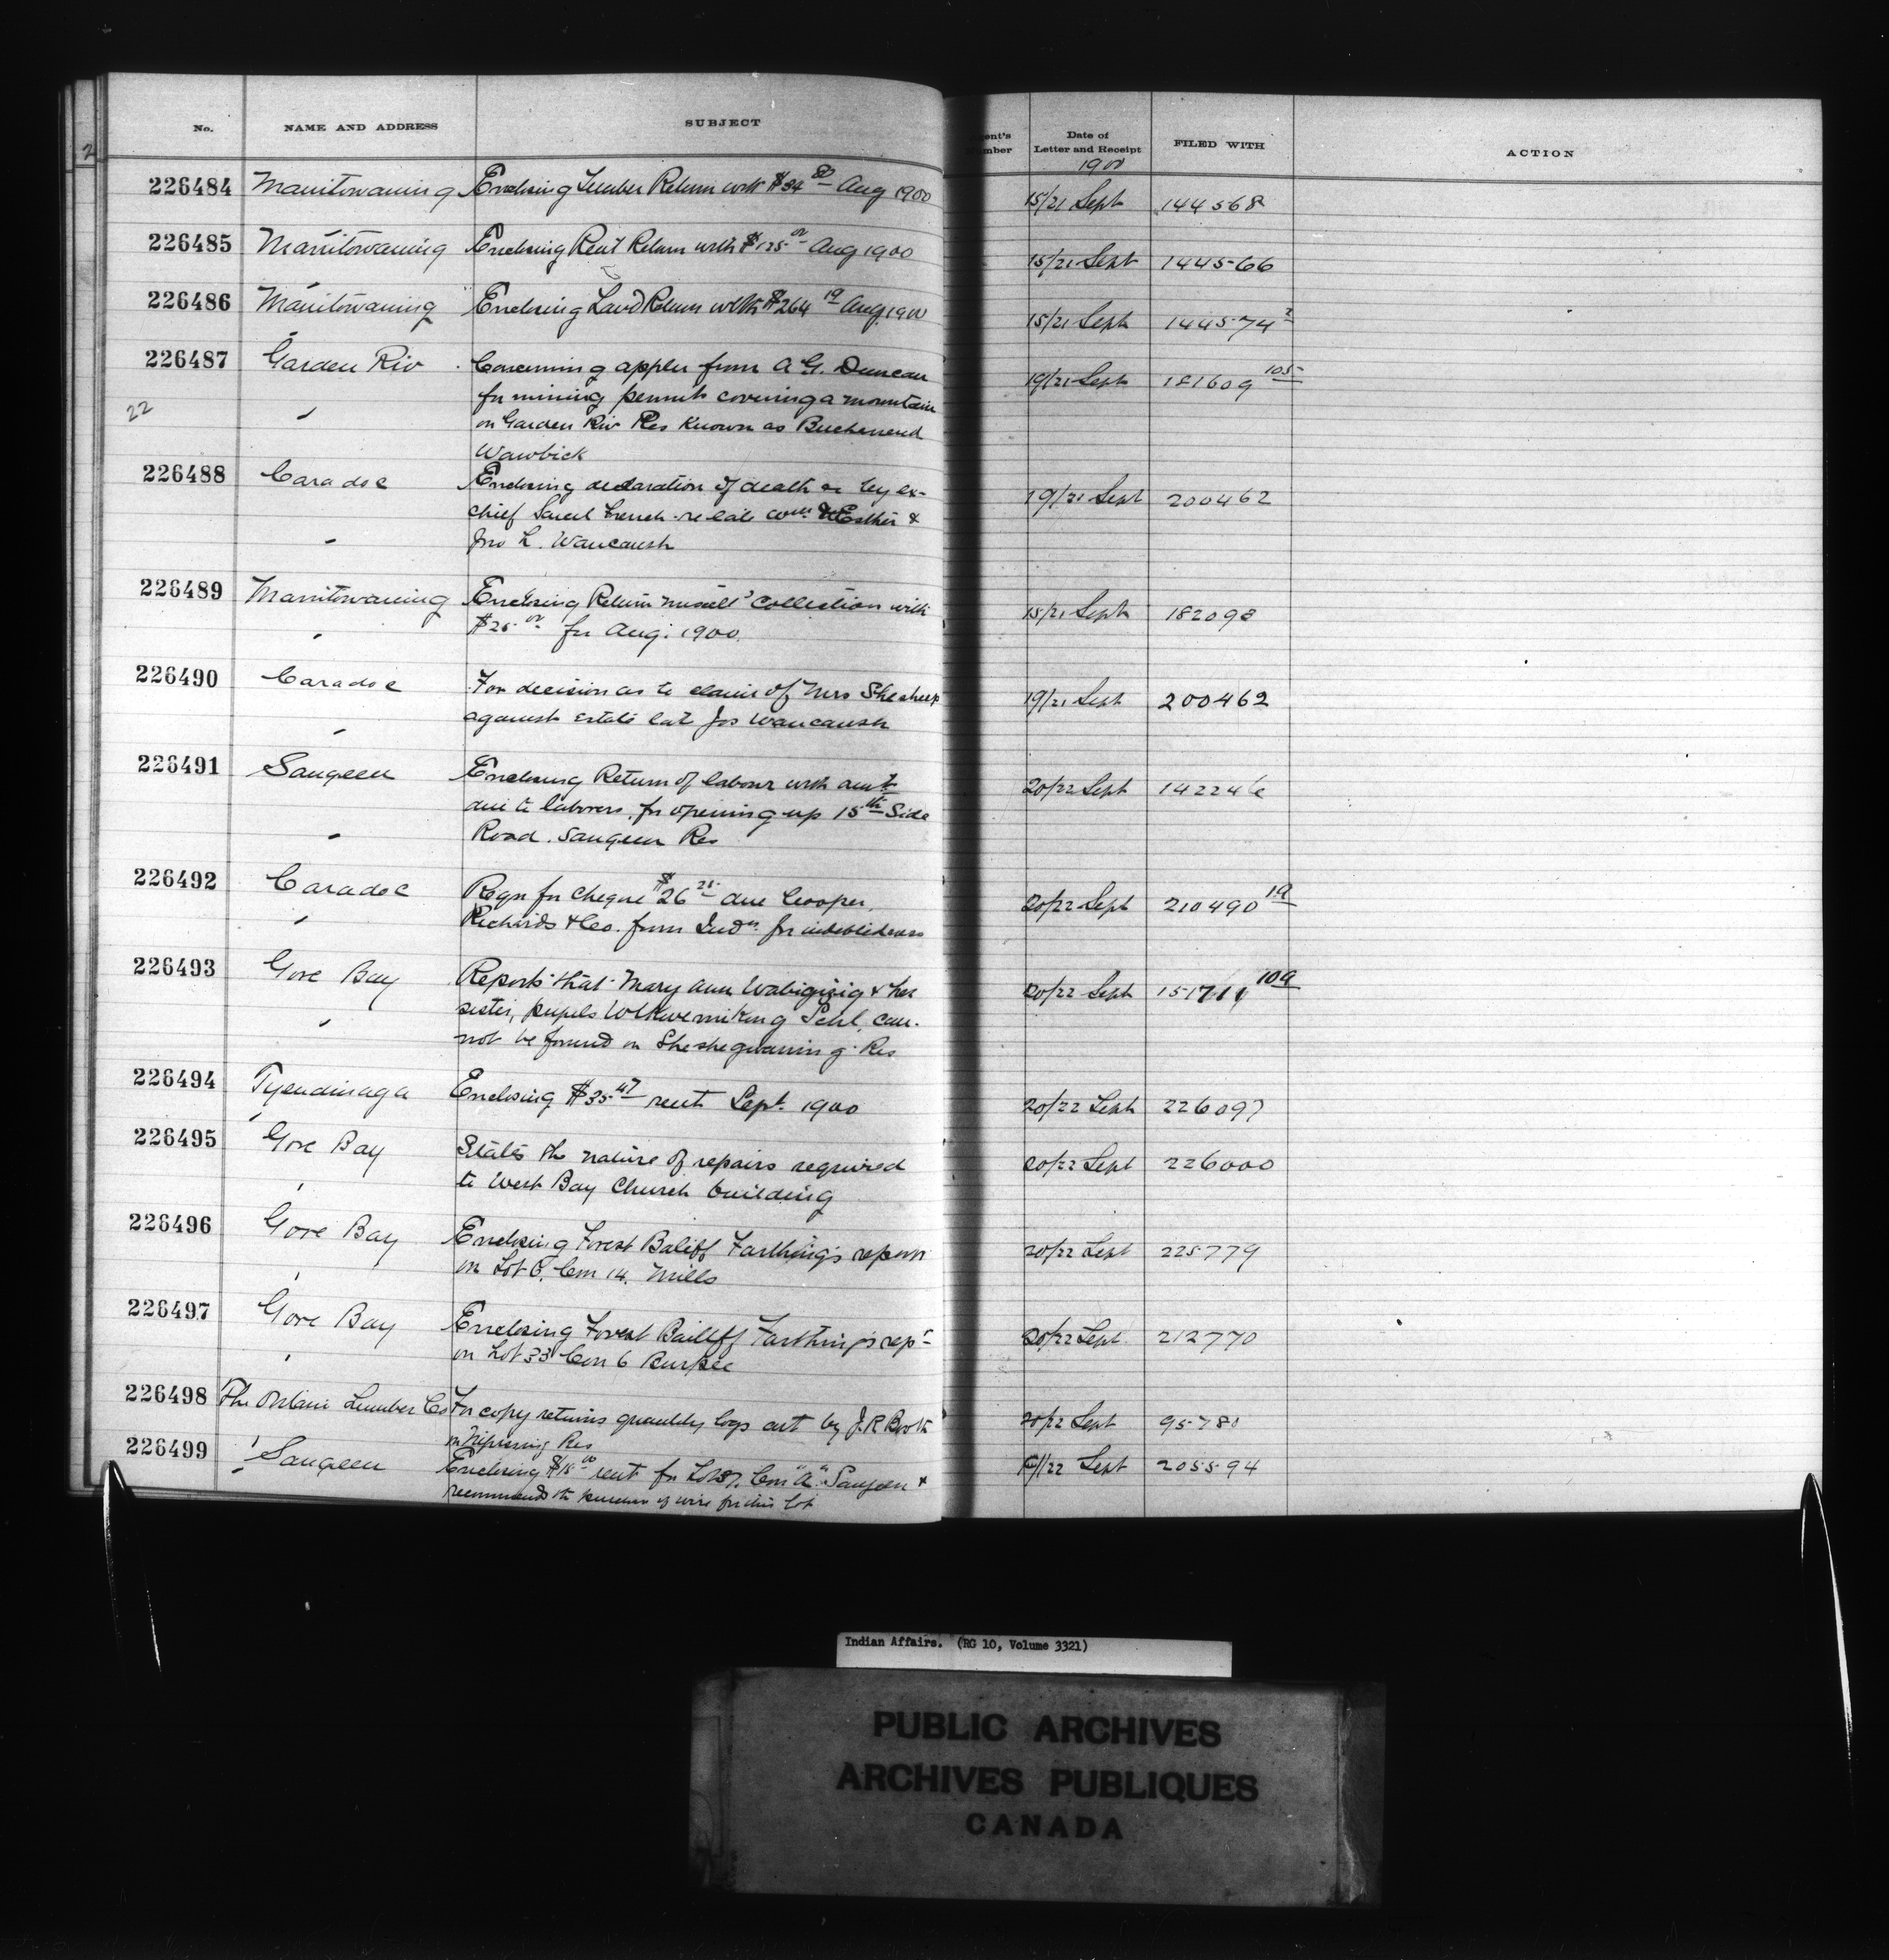 No. NAME AND ADDRESS SUBJECT Date of Letter and Receipt FILED WITH ACTION
1900
2
226484 Manitowaning Enclosing Lumber Return with $34 80 Aug 1900 15/21 Sept 144568
226485 Manitowaning Enclosing Rent Return with $125 00 Aug 1900 15/21 Sept 144566
226486 Manitowaning Enclosing Land Return with $264 19 Aug 1900 15/21 Sept 144574 2
226487 Garden Riv Concerning appln from A G. Duncan 19/21 Sept 181609 105
22 for mining permit covering a mountain
on Garden Riv Res known as
Wawbick
226488 Caradoc Enclosing declaration of death by ex- 19/21 Sept 200462
chief French re late Wm & Esther &
Jno L. Waucaush
226489 Manitowaning Enclosing Return Collection with 15/21 Sept 182098
$25 00 for Aug. 1900.
226490 Caradoc For decision as to claim of Mrs 19/21 Sept 200462
against Estate late Jos Waucaush
226491 Saugeen Enclosing Return of labour with amt 20/22 Sept 142246
due to laborers, for opening up 15th Side
Road. Saugeen Res
226492 Caradoc Reqn for cheque $26 25 due Cooper, 20/22 Sept 210490 19
Richards & Co. from Indn for indebtedness
226493 Gore Bay Reports that Mary Ann Wabigizig & her 20/22 Sept 151711 109
sister, pupils Wikwemikong Schl, can-
not be found on Sheshegwaning Res
226494 Tyendinaga Enclosing $35 47 rent Sept. 1900 20/22 Sept 226097
226495 Gore Bay States the nature of repairs required 20/22 Sept 226000
to West Bay Church building
226496 Gore Bay Enclosing Forest Baliff Farthing's report 20/22 Sept 225779
on Lot 6, Con 14. Mills
226497 Gore Bay Enclosing Forest Bailiff Farthing's rept 20/22 Sept 212770
on Lot 33 Con 6 Burpee
226498 The Ontario Lumber Co For copy returns quantity logs cut by J.R Booth 20/22 Sept 95780
on Nipissing Res
226499 Saugeen Enclosing $18 00 rent for Con "A" Saugeen & /22 Sept 205594
recommends the purchase of wire for this lot
Indian Affairs. (RG 10, Volume 3321)
PUBLIC ARCHIVES
ARCHIVES PUBLIQUES
CANADA